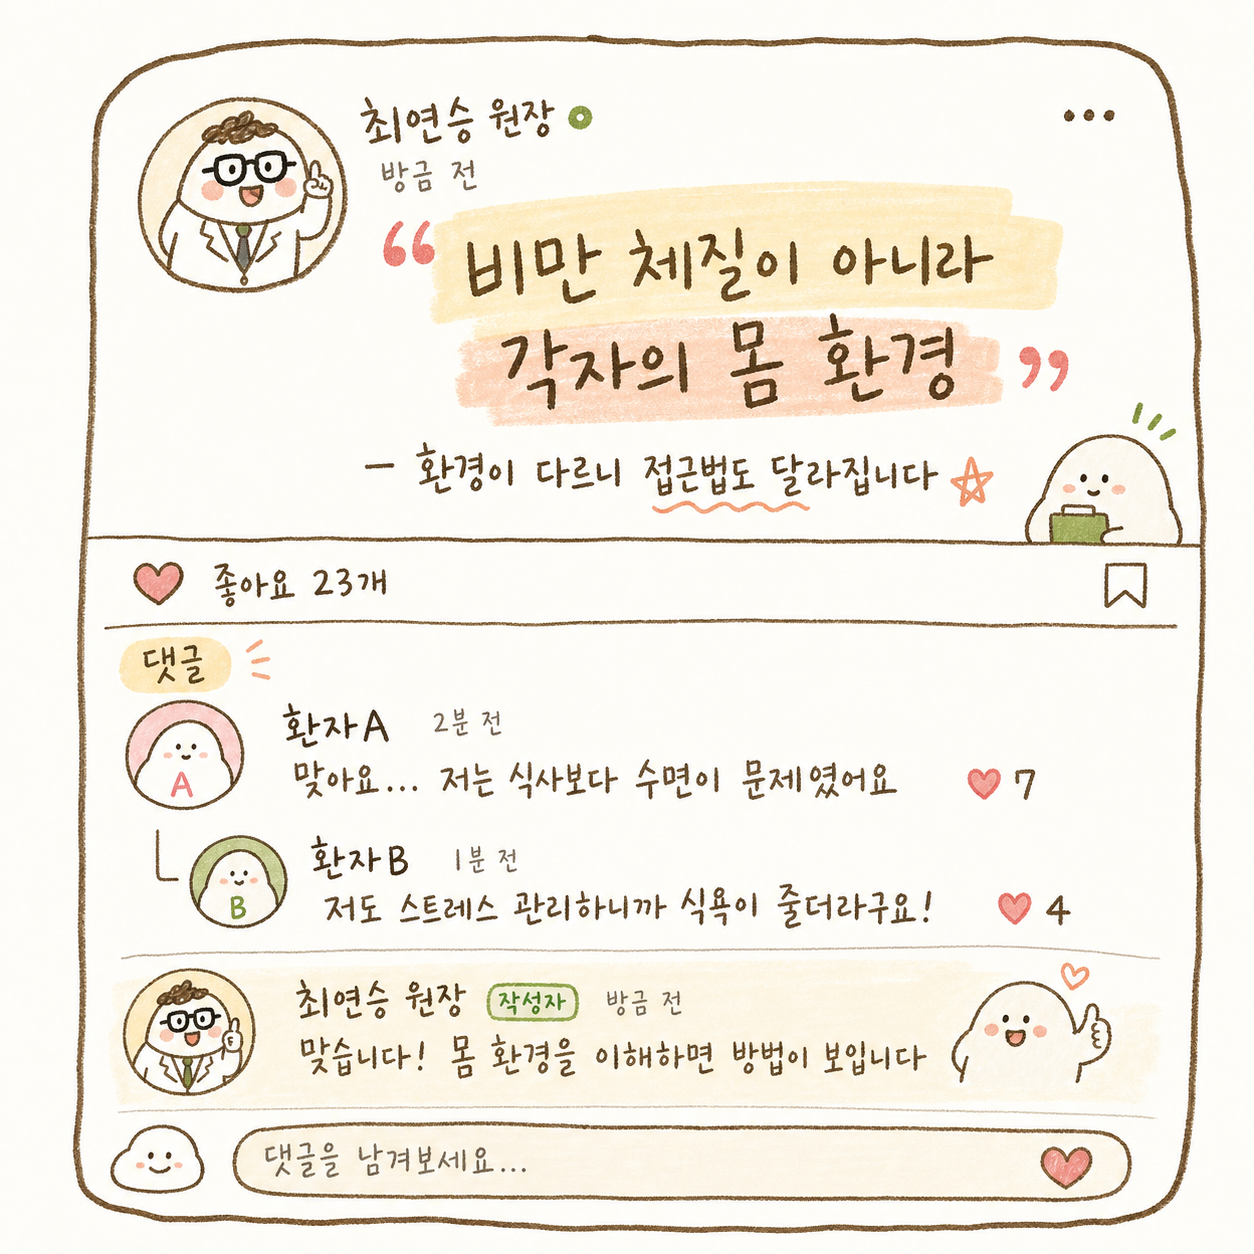 최연승 원장
방금 전
“ 비만 체질이 아니라
각자의 몸 환경 ”
– 환경이 다르니 접근법도 달라집니다
좋아요 23개
댓글
환자A 2분 전
A
맞아요... 저는 식사보다 수면이 문제였어요 7
환자B 1분 전
B
저도 스트레스 관리하니까 식욕이 줄더라구요! 4
최연승 원장 작성자 방금 전
맞습니다! 몸 환경을 이해하면 방법이 보입니다
댓글을 남겨보세요...